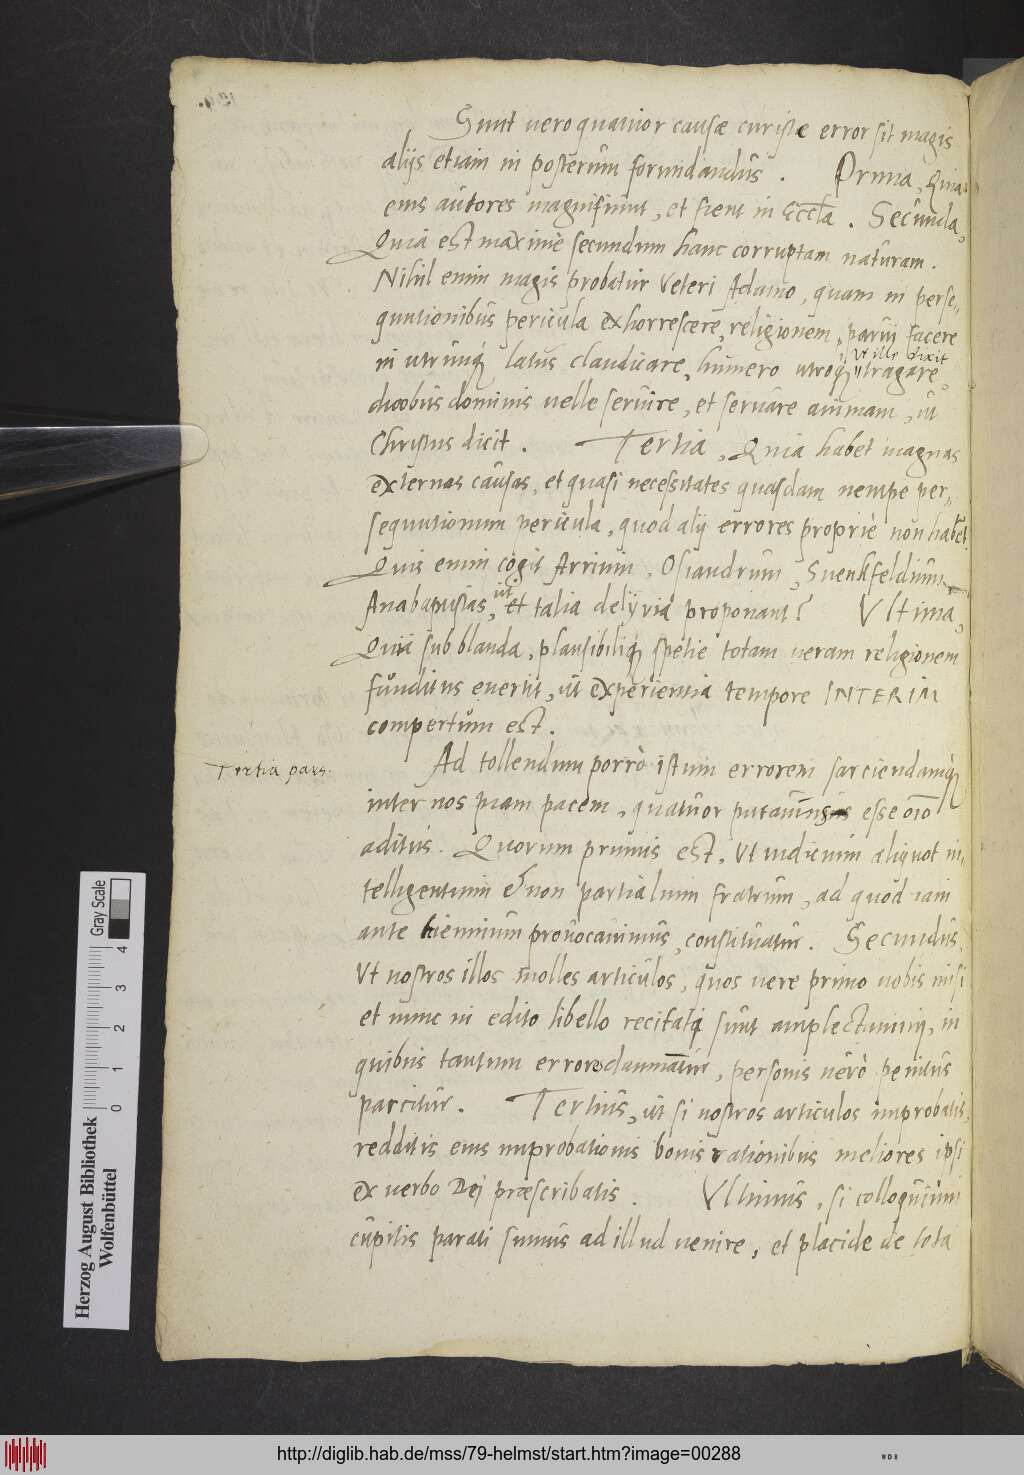 Sunt vero quatuor causæ cur iste error sit magis
alijs etiam in posterum formidandus. Prima, Quia
eius autores magnifiunt, et fient in Eccła. Secunda,
Quia est maximè secundum hanc corruptam naturam.
Nihil enim magis probatur Veteri Adamo, quam in perse-
quutionibus pericula exhorrescere, religionem parvi facere
in utrunq; latus claudicare, humero utroq; ut ille dixit tragare,
duobus dominis uelle seruire, et seruare animam, ut
Christus dicit. Tertia, Quia habet magnas
externas causas, et quasi necessitates quasdam nempe per-
sequutionum pericula, quod alij errores propriè non habēt.
Quis enim cogit Arrium, Osiandrum, Suenkfeldium
Anabaptistas, ut et talia delyria proponant? Ultima,
Quia sub blanda, plausibiliq; spetie totam ueram religionem
funditus euertit, ut experientia tempore INTERIM
compertum est.
Tertia pars.
Ad tollendum porrò istum errorem sarciendamq;
inter nos piam pacem, quatuor putauimus esse oīo
aditus. Quorum primus est, Ut iudicium aliquot in-
telligentium & non partialium fratrum, ad quod iam
ante biennium prouocauimus, constituatur. Secundus,
Ut nostros illos molles articulos, quos vere primo uobis misi
et nunc in edito libello recitati sunt amplectimini, in
quibus tantum errores damnātur, personis uerò penitus
parcitur. Tertius, ut si nostros articulos improbatis,
redditis eius improbationis bonis rationibus meliores ipsi
ex uerbo Dei præscribatis. Ultimus, si colloquium
cupitis parati sumus ad illud uenire, et placide de tota
Gray Scale
4 3 2 1 0
Herzog August Bibliothek
Wolfenbüttel
http://diglib.hab.de/mss/79-helmst/start.htm?image=00288
WDB